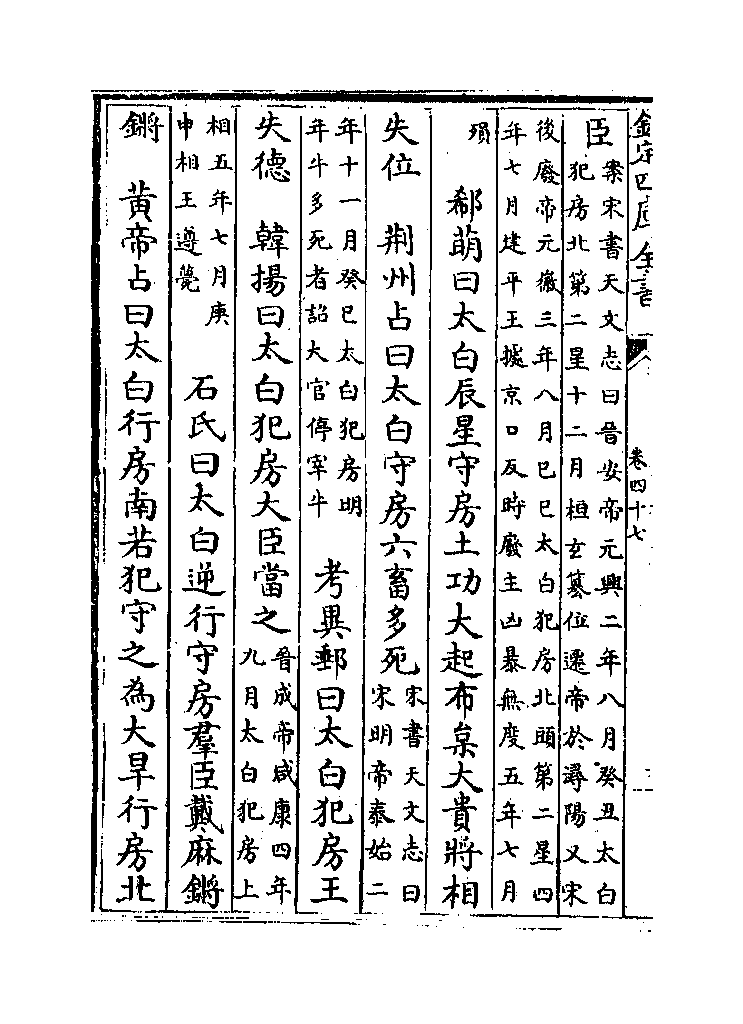 欽定四庫全書
卷四十七
臣案宋書天文志曰晉安帝元興二年八月癸丑太白
犯房北第二星十二月桓玄篡位遷帝於潯陽又宋
後廢帝元徽三年八月己巳太白犯房北頭第二星四
年七月建平王據京口反時廢主凶暴無度五年七月
殞 郗萌曰太白辰星守房土功大起布帛大貴將相
失位 荆州占曰太白守房六畜多死宋書天文志曰
宋明帝泰始二
年十一月癸巳太白犯房明
年牛多死者詔大官停宰牛 考異郵曰太白犯房王
失德 韓揚曰太白犯房大臣當之晉成帝咸康四年
九月太白犯房上
相五年七月庚
申相王導薨 石氏曰太白逆行守房羣臣戴麻鏘
鏘 黃帝占曰太白行房南若犯守之為大旱行房北